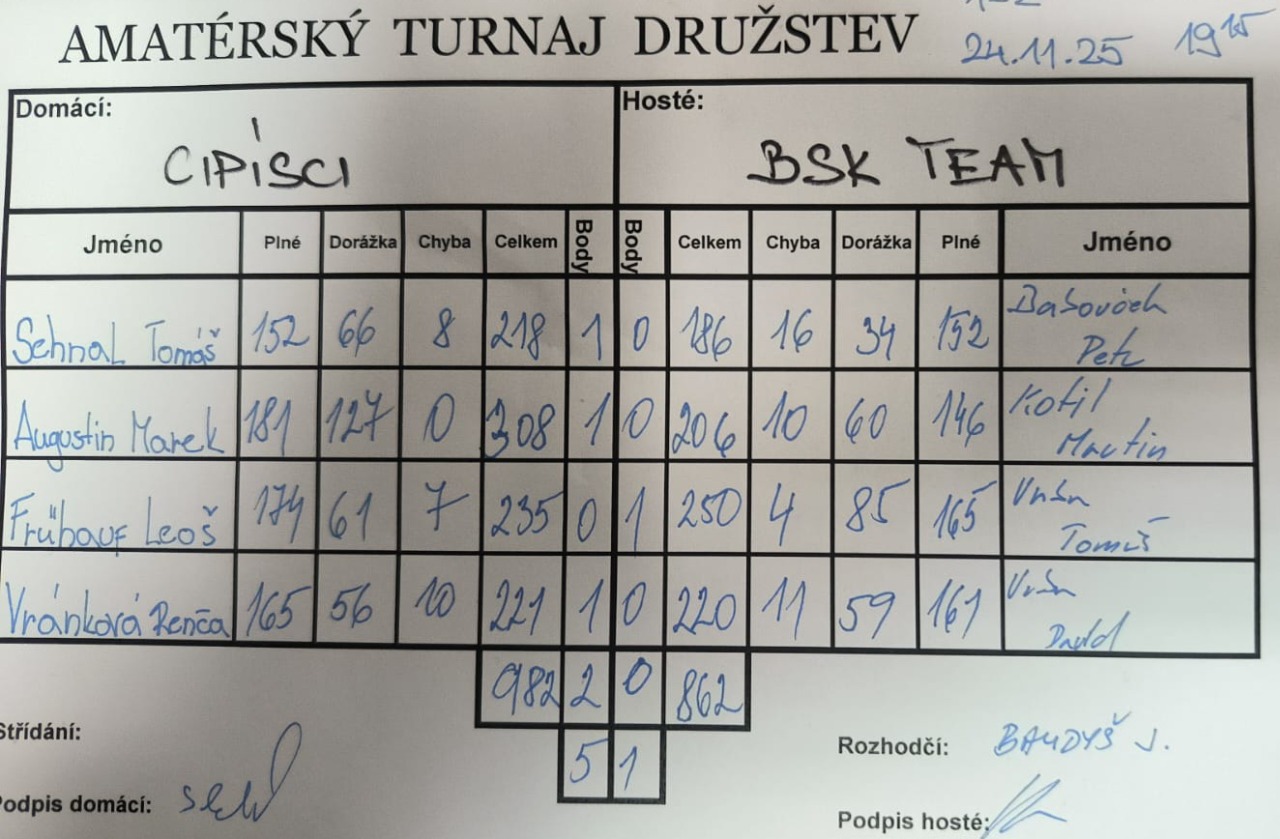 AMATÉRSKÝ TURNAJ DRUŽSTEV
24.11.25 19 15
Domácí: Hosté:
CIPÍSCI BSK TEAM
Jméno Plné Dorážka Chyba Celkem Body Body Celkem Chyba Dorážka Plné Jméno
Sehnal Tomáš 152 66 8 218 1 0 186 16 34 152 Petr
Augustin Marek 181 127 0 308 1 0 206 10 60 146 Kotil Martin
Frühauf Leoš 174 61 7 235 0 1 250 4 85 165 Tomáš
Vránková Renča 165 56 10 221 1 0 220 11 59 161 David
982 2 0 862
5 1
Střídání:
Rozhodčí: BAUDYŠ J.
Podpis domácí:
Podpis hosté: